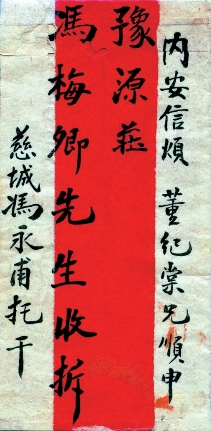 内安信煩　董紀棠兄順申
豫源莊
馮梅卿先生收拆
慈城馮永甫托干